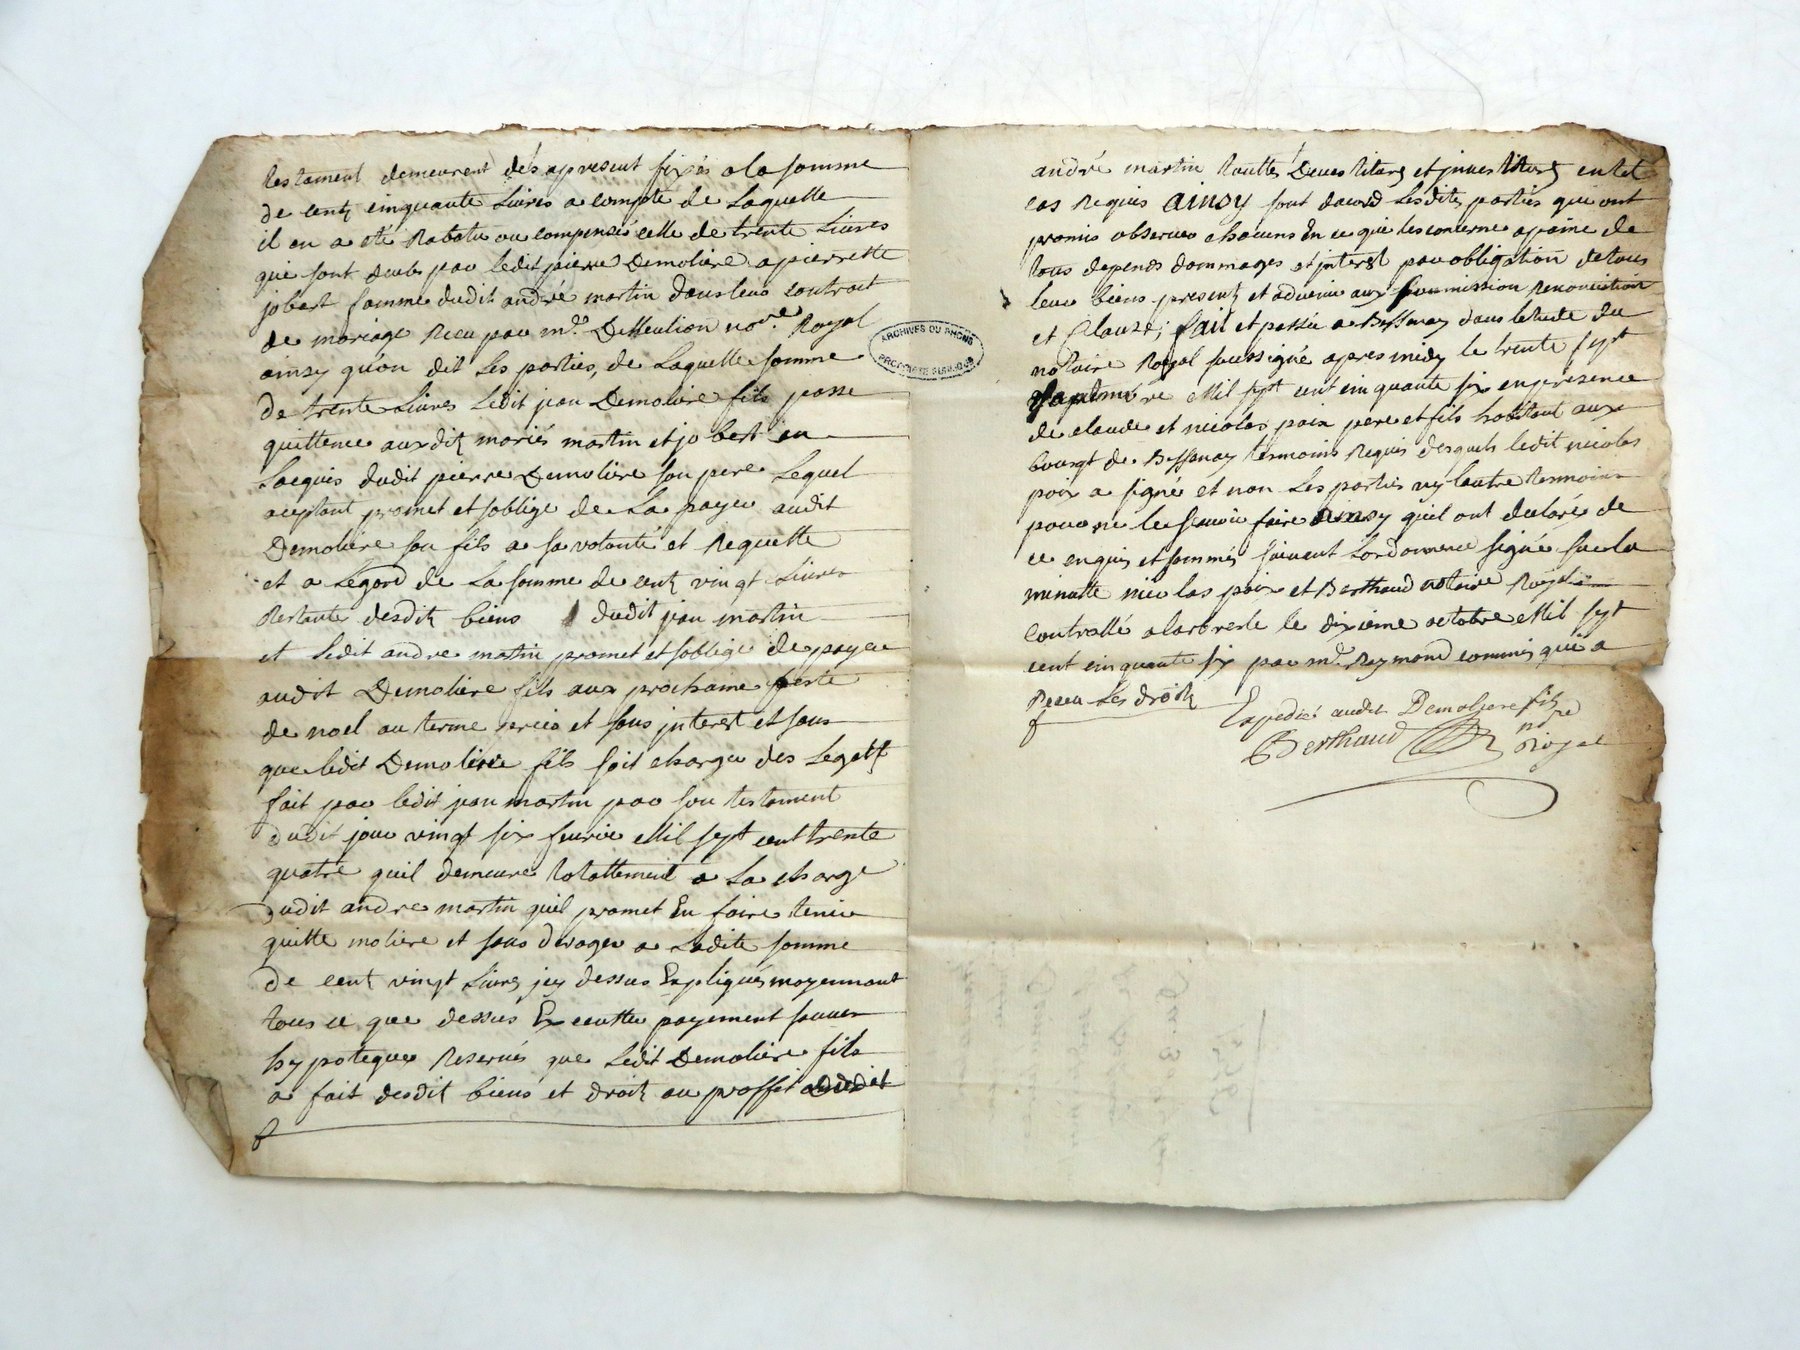 testament demeurent dés apresent fixés a la somme
de cent cinquante Livres a compte de Laquelle
il en a eté Rabatu ou compensés celle de trente Livres
qui sont deubs par ledit pierre Demoliere a pierrette
jobert famme dudit andré martin dans leur contrait
de mariage Receu par m.e nore. Royal
ainsy qu'on dit Les parties, de Laquelle somme
de trente Livres Ledit jean Demoliere fils passe
quittence auxdit mariés martin et jobert en
Lacquis dudit pierre Demoliere son pere Lequel
aceptant promet et soblige de La payer audit
Demoliere son fils a sa volonté et Requette
et a Legard de La somme de cent vingt Livres
Restante desdit biens dudit jean martin
et Ledit andre martin promet et soblige de payer
audit Demoliere fils aux prochaine feste
de noel au terme precis et sans jnterest et sans
que ledit Demoliere fils soit charger des Legatt
fait par ledit jean martin par son testament
dudit jour vingt six feurier Mil sept cent trente
quatre quil demeure totallement a La charge
dudit andre martin quil promet En faire tenir
quitte moliere et sans deroger a Ladite somme
de cent vingt Livres jcy dessus Expliqués moyennant
tous ce que dessus Executter payement
hypoteques Reservés que Ledit Demoliere fils
a fait desdit biens et droit au proffit dudit
andré martin touttes Deuestitures et jnuestitures en tel
cas Requis ainsy sont dacord Lesdites parties qui ont
promis observer chacuns En ce qui les concerne a paine de
tous depends dommages et jnterest par obligation de tous
leur biens present et advenir aux soumission Renonciation
et Clause; fait et passée a Bessenay dans letude du
notaire Royal soussigné apres midy le trente sept
septembre Mil sept cent cinquante six en presence
de claude et nicolas poix pere et fils habitant aux
bourgt de Bessenay tesmoins Requis desquels ledit nicolas
poix a signé et non Les parties ny lautre tesmoins
pour ne le scauoir faire ainsy quil ont declaré de
ce enquis et sommés suivant Lordonnence signé sur la
minutte nicolas poix et Berthaud notaire Royal
Controllé a larbresle le dixieme octobre Mil sept
cent cinquante six par m.e Raymond commis qui a
Receu Les droits
Expedié audit Demolyere fils
Berthaud nre
Royal
ARCHIVES DU RHONE